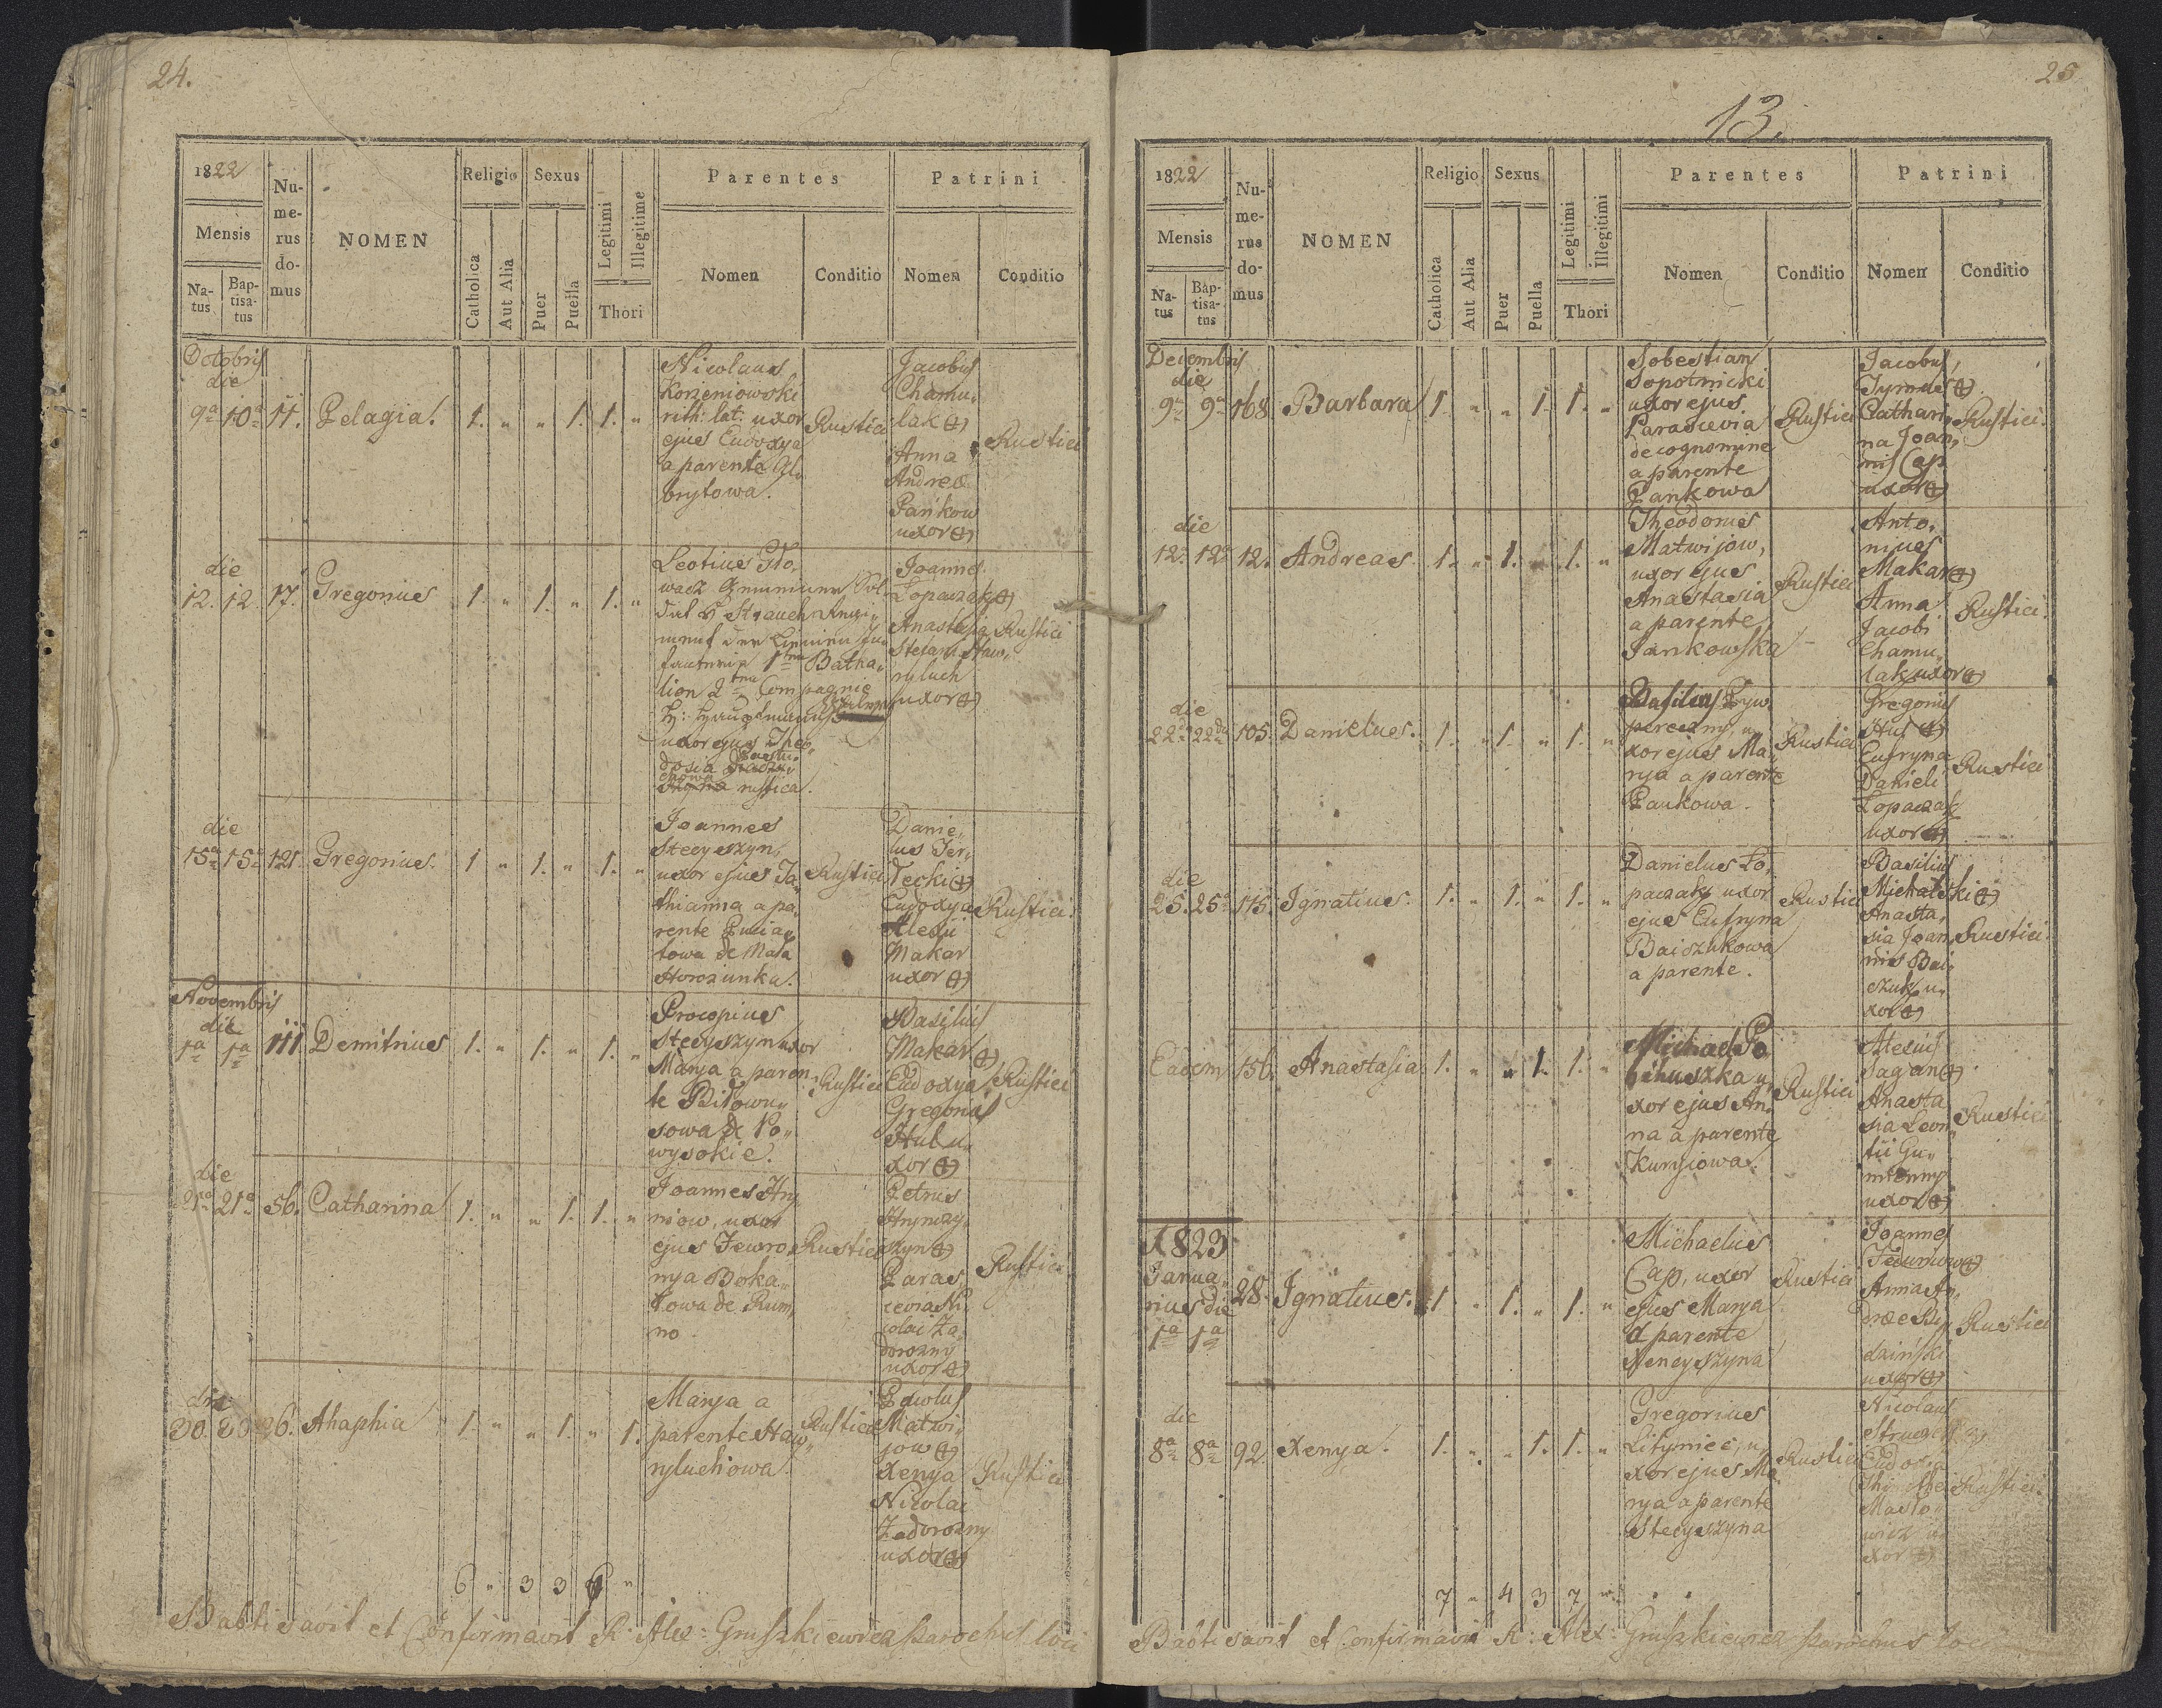 24.
1822
Mensis
Na-
tus
Bap-
tisa-
tus
Nu-
me-
rus
do-
mus
NOMEN
Religio
Catholica
Aut Alia
Sexus
Puer
Puella
Legitimi
Illegitime
Thori
Parentes
Nomen
Conditio
Patrini
Nomen
Conditio
Octobris
die
9a 10a 11. Pelagia. 1. " " 1. 1. "
Nicolaus
Korzeniowski
rith: lat: uxor
ejus Eudoxya
a parente
brytowa.
Rustici
Jacobus
Chamu„
lak (+)
Anna
Andreæ
Pańkow
uxor (+)
Rustici
die
12. 12. 17. Gregorius 1. " 1. " 1. "
Leotius
1ma Batha„
lion 2ma Compagnie
uxor ejus Theo„
dosia
rustica.
Joannes
Łopaczak (+)
Anastasia
Stefani Haw„
ryluch
uxor (+)
Rustici
die
15a 15a 121. Gregorius. 1 " 1. " 1. "
Joannes
Stecyszyn,
uxor ejus Ta„
thianna a pa„
rente
towa de Mała
Horozanka.
Rustici
Danie„
lus Ter„
lecki (+)
Eudoxya
Alexii
Makar
uxor (+)
Rustici
Novembris
die
1a 1a 111. Demitrius 1. " 1. " 1. "
Procopius
Stecyszyn uxor
Marya a paren„
te Biłowu„
sowa de Po„
wysokie.
Rustici
Basilius
Makar (+)
Eudoxya
Gregorii
Huk u„
xor (+)
Rustici
die
21a 21a 56. Catharina 1. " " 1. 1. "
Joannes Hry„
niow, uxor
ejus Jewro„
nya Boka„
towa de Rum„
no.
Rustici
Petrus
Hrynczy„
szyn (+)
Paras„
cevia Ni„
colai Za„
dorozny
uxor (+)
Rustici
die
30. 30 96. Ahaphia 1. " " 1. " 1.
Marya a
parente Haw„
ryluchowa.
Rustica
Pawlus
Matwi„
jow (+)
Xenya
Nicolai
Zadorozny
uxor (+)
Rustici
6 " 3 3 6 "
Babtisavit et Confirmavit R: Alex: Gruszkiewicz Parochus loci
25
13.
1822
Mensis
Na-
tus
Bap-
tisa-
tus
Nu-
me-
rus
do-
mus
NOMEN
Religio
Catholica
Aut Alia
Sexus
Puer
Puella
Legitimi
Illegitimi
Thori
Parentes
Nomen
Conditio
Patrini
Nomen
Conditio
Decembris
die
9a 9a 168 Barbara 1. " " 1. 1. "
Sobestian
Sopotnicki
uxor ejus
Parascevia
de cognomine
a parente
Pankowa
Rustici
Jacobus
(+)
Cathari„
na Joan„
nis Cap
uxor (+)
Rustici.
die
12a 12a 12. Andreas. 1. " 1. " 1. "
Theodorus
Matwijow,
uxor ejus
Anastasia
a parente
Jankowska
Rustici
Anto„
nius
Makar (+)
Anna
Jacobi
Chamu„
lak uxor (+)
Rustici.
die
22da 22da 105. Danielus. 1. " 1. " 1. "
Basilius
u„
xor ejus Ma„
rya a parente
Pankowa.
Rustici
Gregorius
Huk (+)
Eufryna
Danieli
Łopaczak
uxor (+)
Rustici
die
25. 25a 115. Ignatius. 1. " 1. " 1. "
Danielus Ło„
paczak uxor
ejus Eufryna
Baiczukowa
a parente.
Rustici
Basilius
Michalski (+)
Anasta„
sia Joan„
nis Bai„
czuk u„
xor (+)
Rustici.
Eadem 156. Anastasia 1. " " 1. 1. "
Michael Po„
u„
xor ejus An„
na a parente
Kurysiowa.
Rustici
Alexius
Sagan (+)
Anasta„
sia Leon„
tii Gu„
mienny
uxor (+)
Rustici
1823
Janua„
rius die
1a 1a 28. Ignatius. 1 " 1. " 1. "
Michaelus
Cap, uxor
ejus Marya
a parente
Xencyszyna
Rustici
Joannes
(+)
Anna An„
dreæ
uxor (+)
Rustici
die
8a 8a 92. Xenya. 1. " " 1. 1. "
Gregorius
Litynieć, u„
xor ejus Ma„
rya a parente
Stecyszyna
Rustici
Nicolaus
Eudoxia
Masło„
wicz u„
xor (+)
Rustici.
7 " 4 3 7 "
Babtisavit et Confirmavit R: Alex: Gruszkiewicz Parochus loci